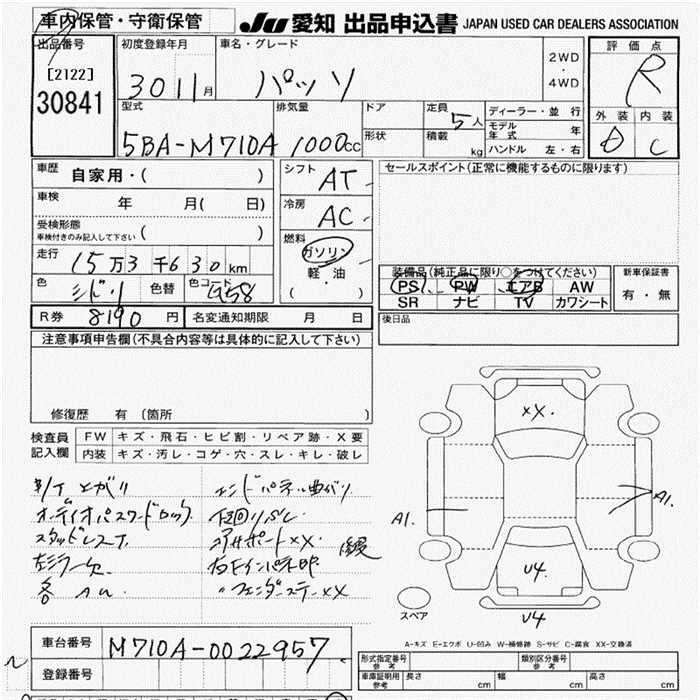 車内保管・守衛保管
JU 愛知 出品申込書 JAPAN USED CAR DEALERS ASSOCIATION
出品番号
[2122]
30841
初度登録年月
30 11 月
車名・グレード
パッソ
2WD
・
4WD
評価点
R
外装 内装
D C
型式
5BA-M710A
排気量
1000cc
ドア
形状
定員
5人
積載
kg
ディーラー・並行
モデル年式 年
ハンドル 左・右
車歴
自家用・( )
車検
年 月( 日)
受検形態
車検付きのみ記入して下さい ( )
走行
15万3千630km
色 色替 色コード
R券 8190 円 名変通知期限 月 日
シフト
AT
冷房
AC
燃料
ガソリン
軽・油
( )
セールスポイント(正常に機能するものに限ります)
装備品(純正品に限り○をつけてください)
PS PW エアB AW
SR ナビ TV カワシート
新車保証書
有・無
後日品
注意事項申告欄(不具合内容等は具体的に記入して下さい)
修復歴 有 (箇所
検査員記入欄
FW キズ・飛石・ヒビ割・リペア跡・X要
内装 キズ・汚レ・コゲ・穴・スレ・キレ・破レ
オーディオパスワードロック
スタッドレスT
左ミラー欠
エンドパネル曲がり
XX
A1.
A1.
U4.
U4
スペア
A-キズ E-エクボ U-凹み W-補修跡 S-サビ C-腐食 XX-交換済
車台番号 M710A-0022957
登録番号
形式指定番号
参考
類別区分番号
参考
車庫証明用
参考
長さ cm 幅 cm 高さ cm